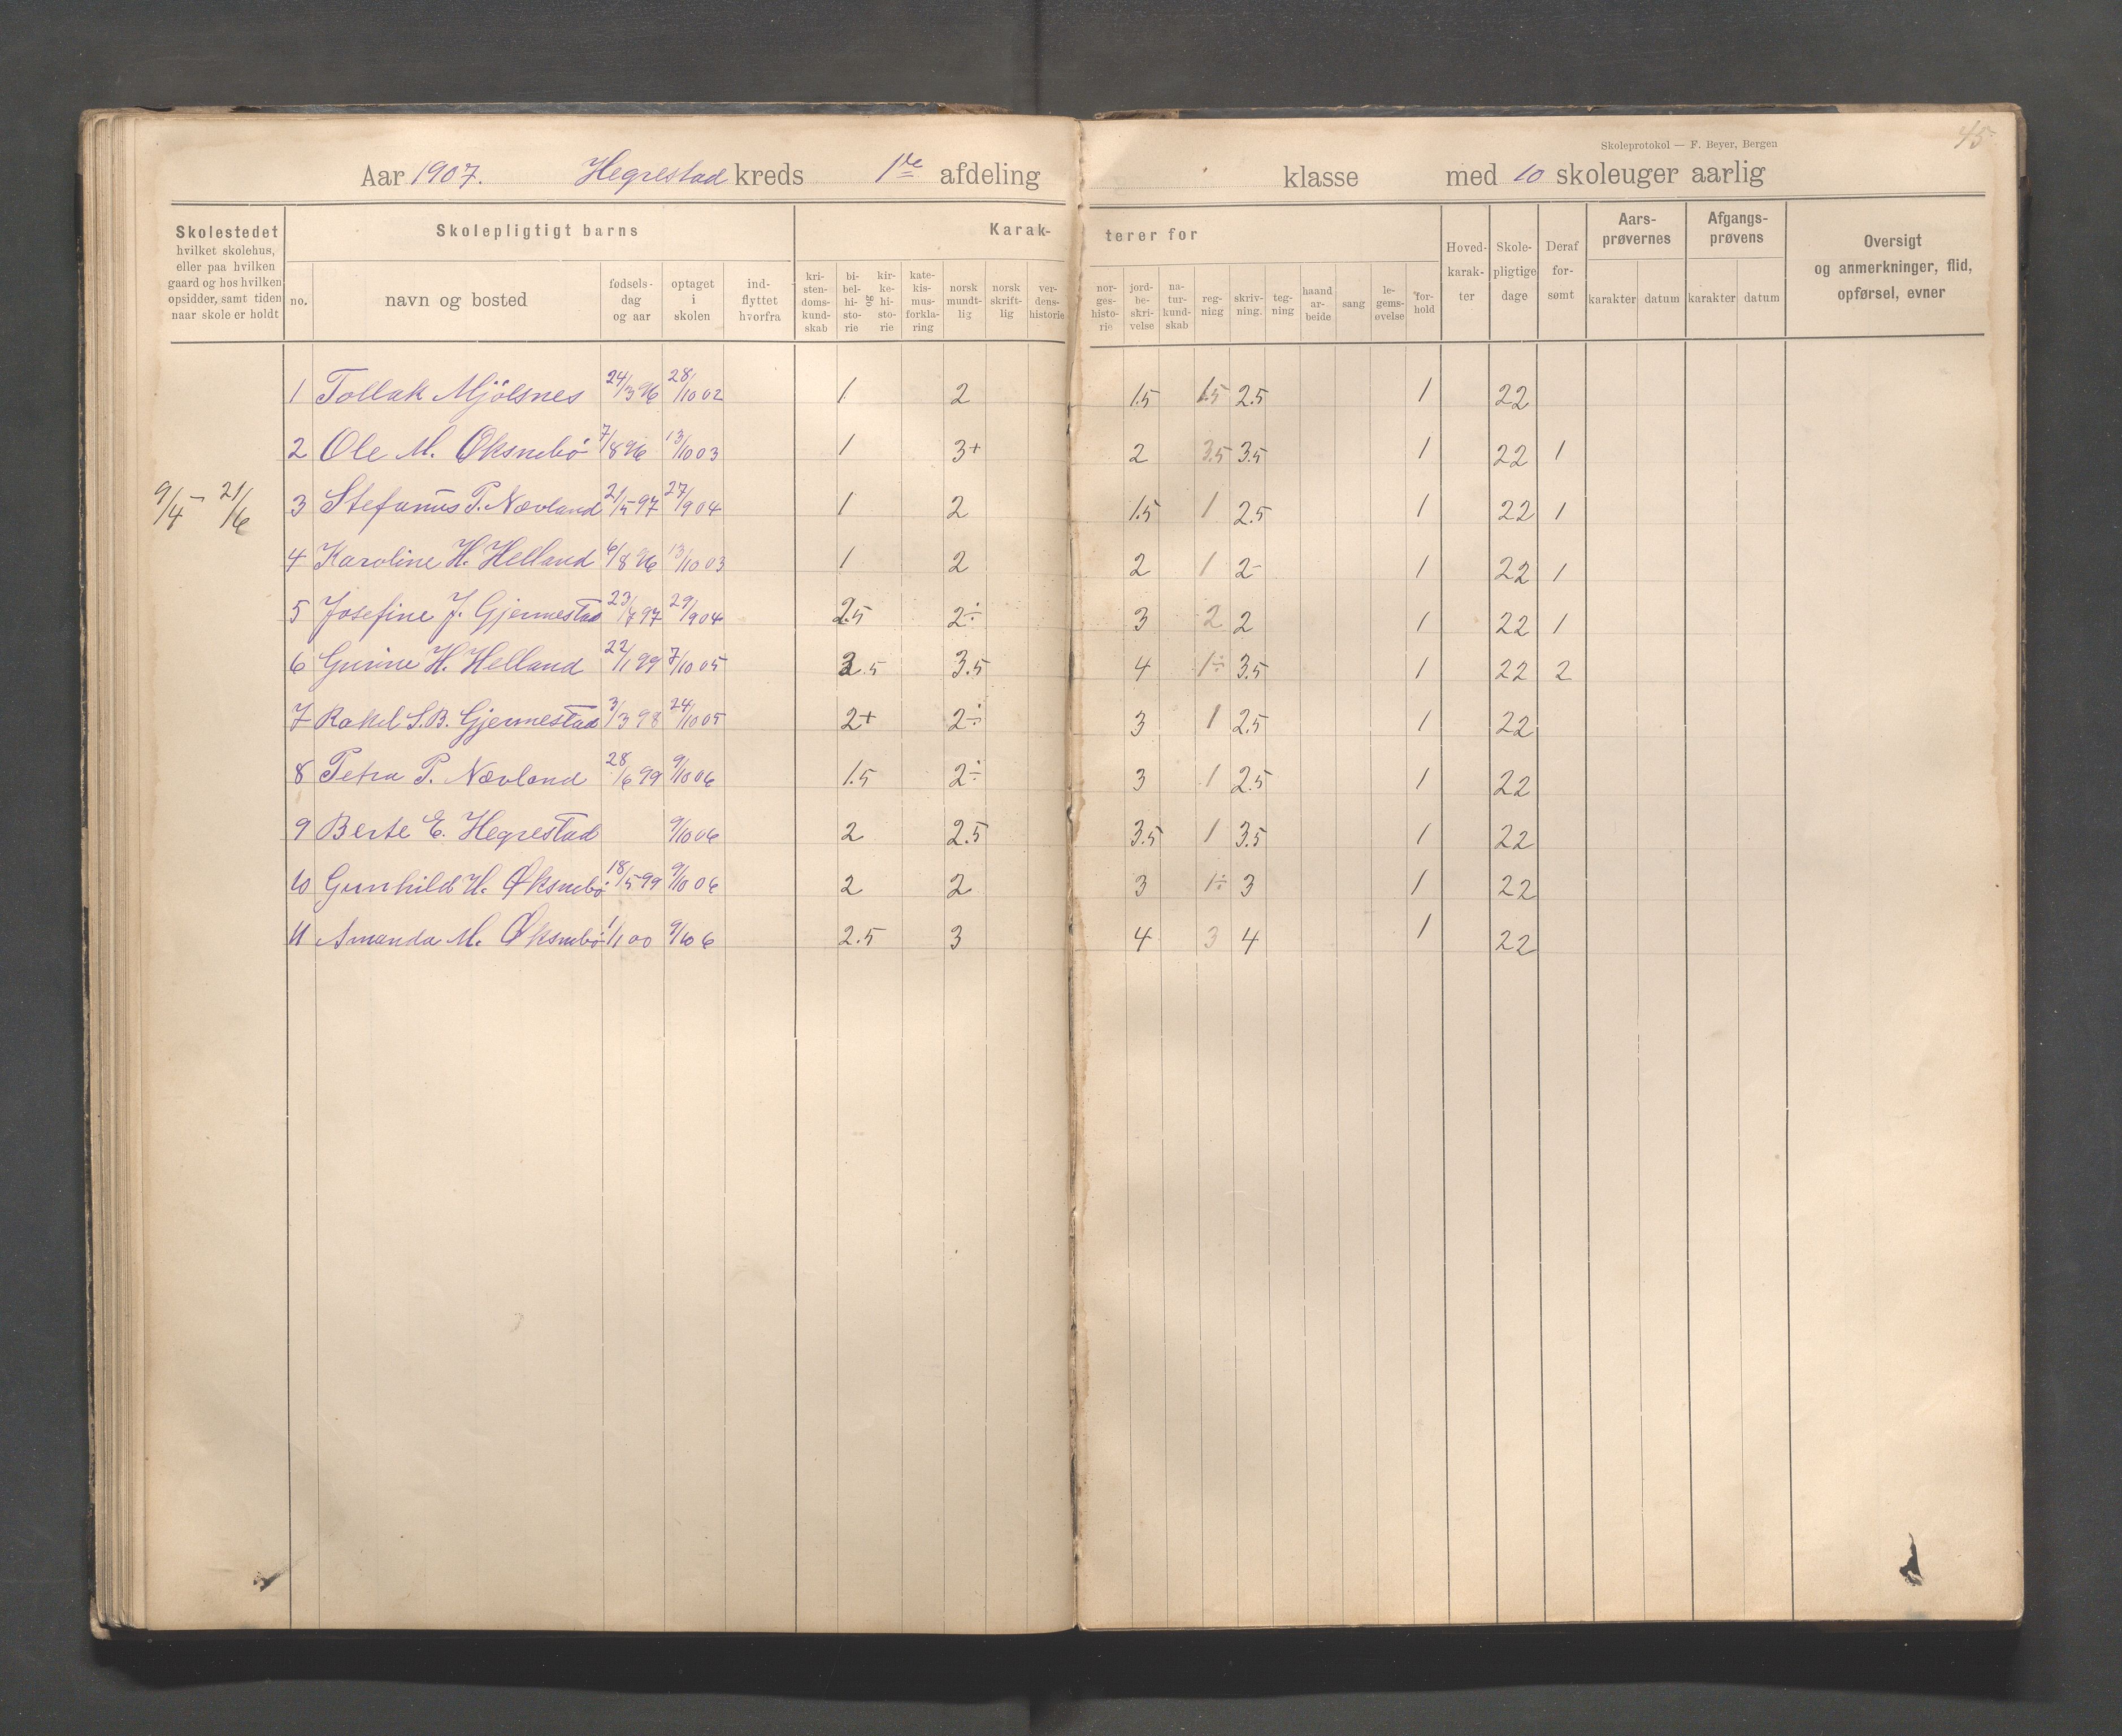 45
Skoleprotokol — F. Beyer, Bergen
Aar 1907. Hegrestad kreds 1ste afdeling klasse med 10 skoleuger aarlig
Skolestedet
hvilket skolehus,
eller paa hvilken
gaard og hos hvilken
opsidder, samt tiden
naar skole er holdt
Skolepligtigt barns
no.
navn og bosted
fødsels-
dag
og aar
optaget
i
skolen
ind-
flyttet
hvorfra
Karak-
terer for
kri-
sten-
doms-
kund-
skab
bi-
bel-
hi-
sto-
rie
og
kir-
ke-
hi-
sto-
rie
kate-
kis-
mus-
forkla-
ring
norsk
mundt-
lig
norsk
skrift-
lig
ver-
dens-
historie
nor-
ges-
histo-
rie
jord-
be-
skri-
velse
na-
tur-
kund-
skab
reg-
nicg
skriv-
ning.
teg-
ning
haand
ar-
beide
sang
le-
gems-
øvelse
for-
hold
Hoved-
karak-
ter
Skole-
pligtige
dage
Deraf
for-
sømt
Aars-
prøvernes
karakter datum
Afgangs-
prøvens
karakter datum
Oversigt
og anmerkninger, flid,
opførsel, evner
1 Tollak Mjölsnes 24/3 96 28/10 02 1 2 1.5 1.5 2.5 1 22
2 Ole M. Øksnebö 7/8 96 13/10 03 1 3+ 2 3.5 3.5 1 22 1
9/4 - 21/6 3 Stefanus P. Nævland 21/5 97 27/9 04 1 2 1.5 1 2.5 1 22 1
4 Karoline H. Helland 6/8 96 13/10 03 1 2 2 1 2- 1 22 1
5 Josefine J. Gjermestad 23/7 97 29/9 04 2.5 2÷ 3 2 2 1 22 1
6 Gurine H. Helland 22/1 99 7/10 05 3.5 4 1÷ 3.5 1 22 2
7 Rakel S.B. Gjermestad 3/3 98 24/10 05 2+ 2÷ 3 1 2.5 1 22
8 Petra P. Nævland 28/6 99 9/10 06 1.5 2÷ 3 1 2.5 1 22
9 Berte E. Hegrestad 9/10 06 2 2.5 3.5 1 3.5 1 22
10 Gunhild H. Øksnebö 18/5 99 9/10 06 2 2 3 1÷ 3 1 22
11 Amanda M. Øksnebö 1/1 00 9/10 6 2.5 3 4 3 4 1 22